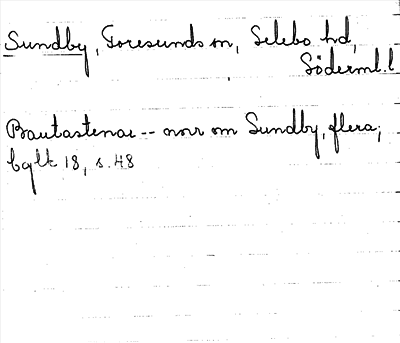 Sundby, Toresunds sn, Selebo hd,
Söderml. l
Bautastenar -- norr om Sundby, flera;
bglk 18, s. 48